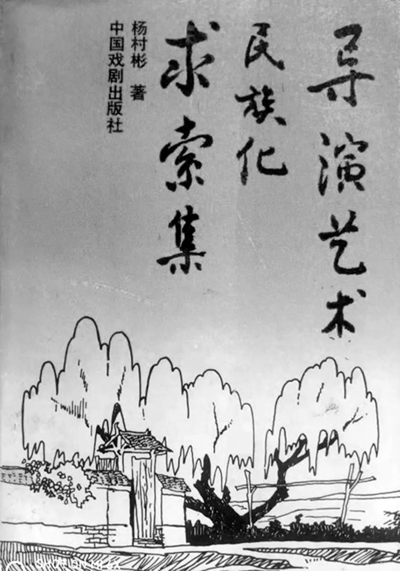 导演艺术
民族化
求索集
杨村彬 著
中国戏剧出版社